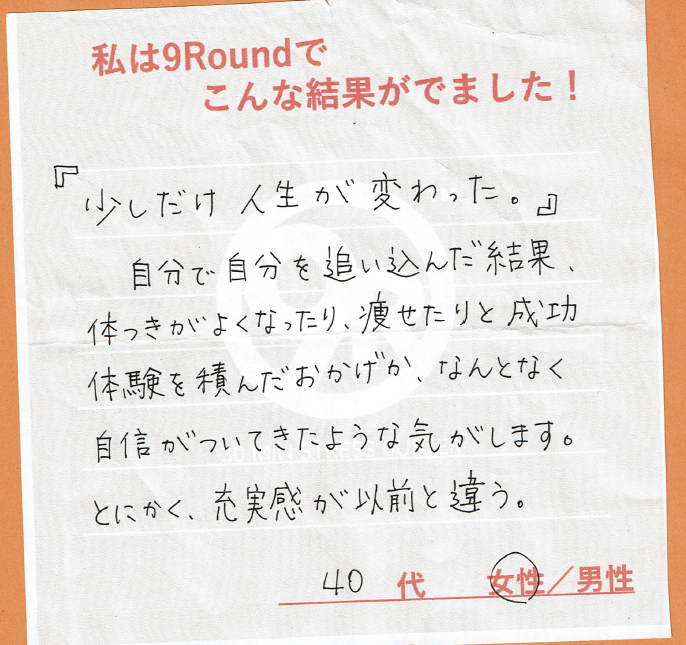 私は9Roundで
こんな結果がでました！
『少しだけ 人生が 変わった。』
自分で自分を追い込んだ結果、
体つきがよくなったり、痩せたりと成功
体験を積んだおかげか、なんとなく
自信がついてきたような気がします。
とにかく、充実感が以前と違う。
40 代 女性／男性